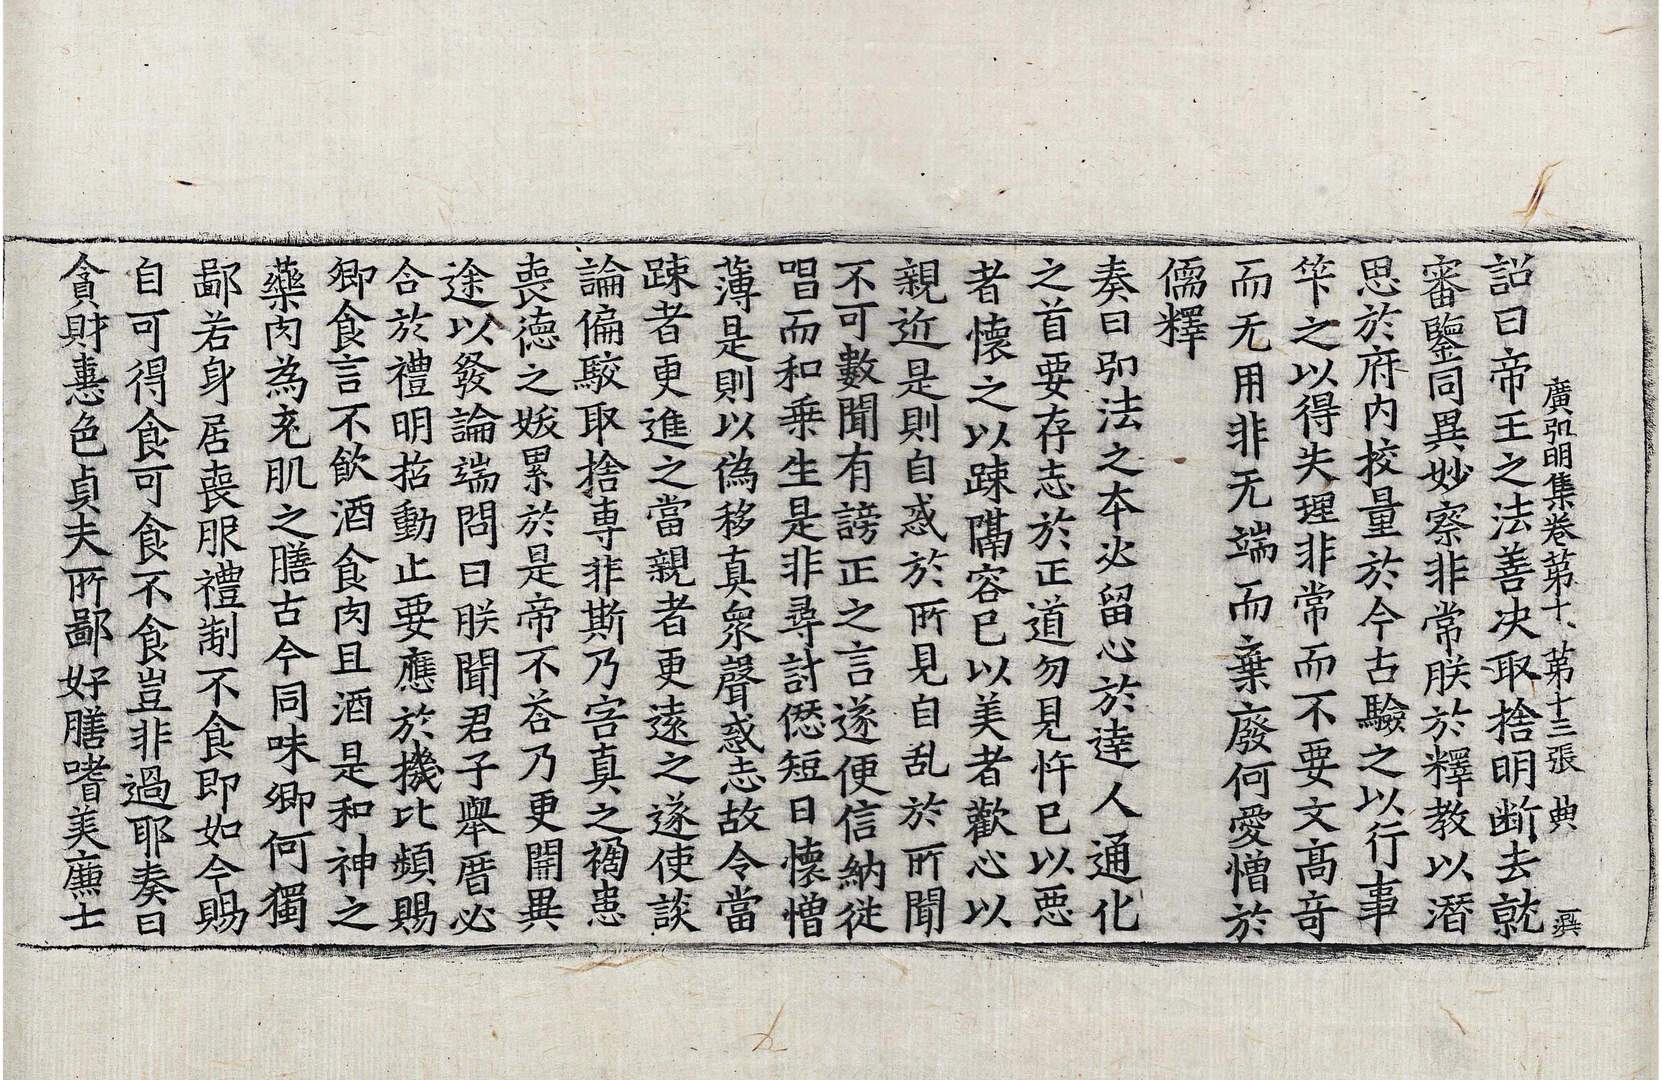 廣弘明集卷第十、第十三張 典
詔曰帝王之法善决取捨明断去就
審鑒同異妙察非常朕於釋教以潛
思於府内挍量於今古驗之以行事
筭之以得失理非常而不要文高竒
而无用非无端而棄廢何愛憎於
儒釋
奏曰弗法之本必留心於達人通化
之首要存志於正道勿見忤已以惡
者懷之以踈隔容已以美者歡心以
親近是則自惑於所見自乱於所聞
不可數聞有謗正之言遂便信納徒
唱而和乗生是非尋討愆短日懷憎
薄是則以偽移真衆聲惑志故令當
踈者更進之當親者更遠之遂使談
論偏駮取捨専非斯乃害真之禍患
喪徳之媛累於是帝不荅乃更開異
途以發論端問曰朕聞君子舉厝必
合於禮明招動止要應於機比頻賜
卿食言不飲酒食肉且酒是和神之
藥肉為充肌之膳古今同味卿何獨
鄙若身居喪服禮制不食即如今賜
自可得食可食不食豈非過耶奏曰
貪財惪色貞夫所鄙好膳嗜美廉士